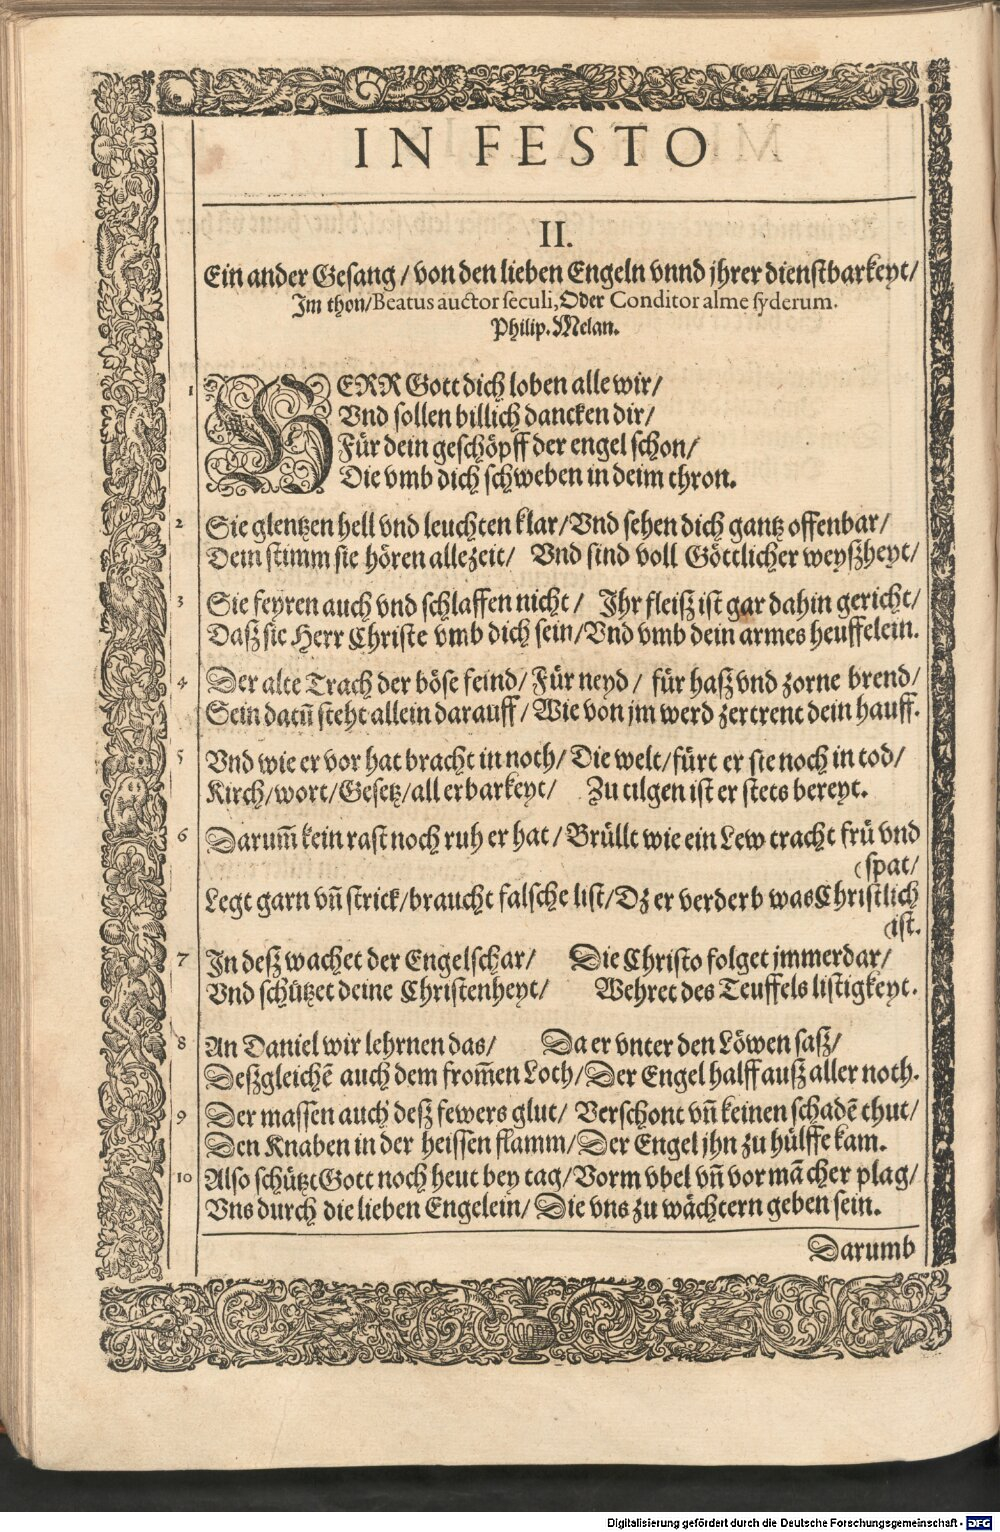 IN FESTO
II.
Ein ander Gesang / von den lieben Engeln vnnd jhrer dienstbarkeyt /
Im thon / Beatus auctor seculi, Oder Conditor alme syderum.
Philip. Melan.
1 HERR Gott dich loben alle wir /
Vnd sollen billich dancken dir /
Für dein geschöpff der engel schon /
Die vmb dich schweben in deim thron.
2 Sie glentzen hell vnd leuchten klar / Vnd sehen dich gantz offenbar /
Dein stimm sie hören allezeit / Vnd sind voll Göttlicher weyßheyt /
3 Sie feyren auch vnd schlaffen nicht / Ihr fleiß ist gar dahin gericht /
Daß sie Herr Christe vmb dich sein / Vnd vmb dein armes heuffelein.
4 Der alte Trach der böse feind / Für neyd / für haß vnd zorne brend /
Sein datū steht allein darauff / Wie von jm werd zertrent dein hauff.
5 Vnd wie er vor hat bracht in noth / Die welt / fürt er sie noch in tod /
Kirch / wort / Gesetz / all erbarkeyt / Zu tilgen ist er stets bereyt.
6 Darum̄ kein rast noch ruh er hat / Brüllt wie ein Lew tracht frü vnd
(spat /
Legt garn vn̄ strick / braucht falsche list / Dz er verderb was Christlich
(ist.
7 In deß wachet der Engelschar / Die Christo folget jmmerdar /
Vnd schützet deine Christenheyt / Wehret des Teuffels listigkeyt.
8 An Daniel wir lehrnen das / Da er vnter den Löwen saß /
Deßgleichē auch dem from̄en Loth / Der Engel halff auß aller noth.
9 Der massen auch deß fewers glut / Verschont vn̄ keinen schadē thut /
Den Knaben in der heissen flamm / Der Engel jhn zu hülffe kam.
10 Also schützt Gott noch heut bey tag / Vorm vbel vn̄ vor mā cher plag /
Vns durch die lieben Engelein / Die vns zu wächtern geben sein.
Darumb
Digitalisierung gefördert durch die Deutsche Forschungsgemeinschaft - DFG